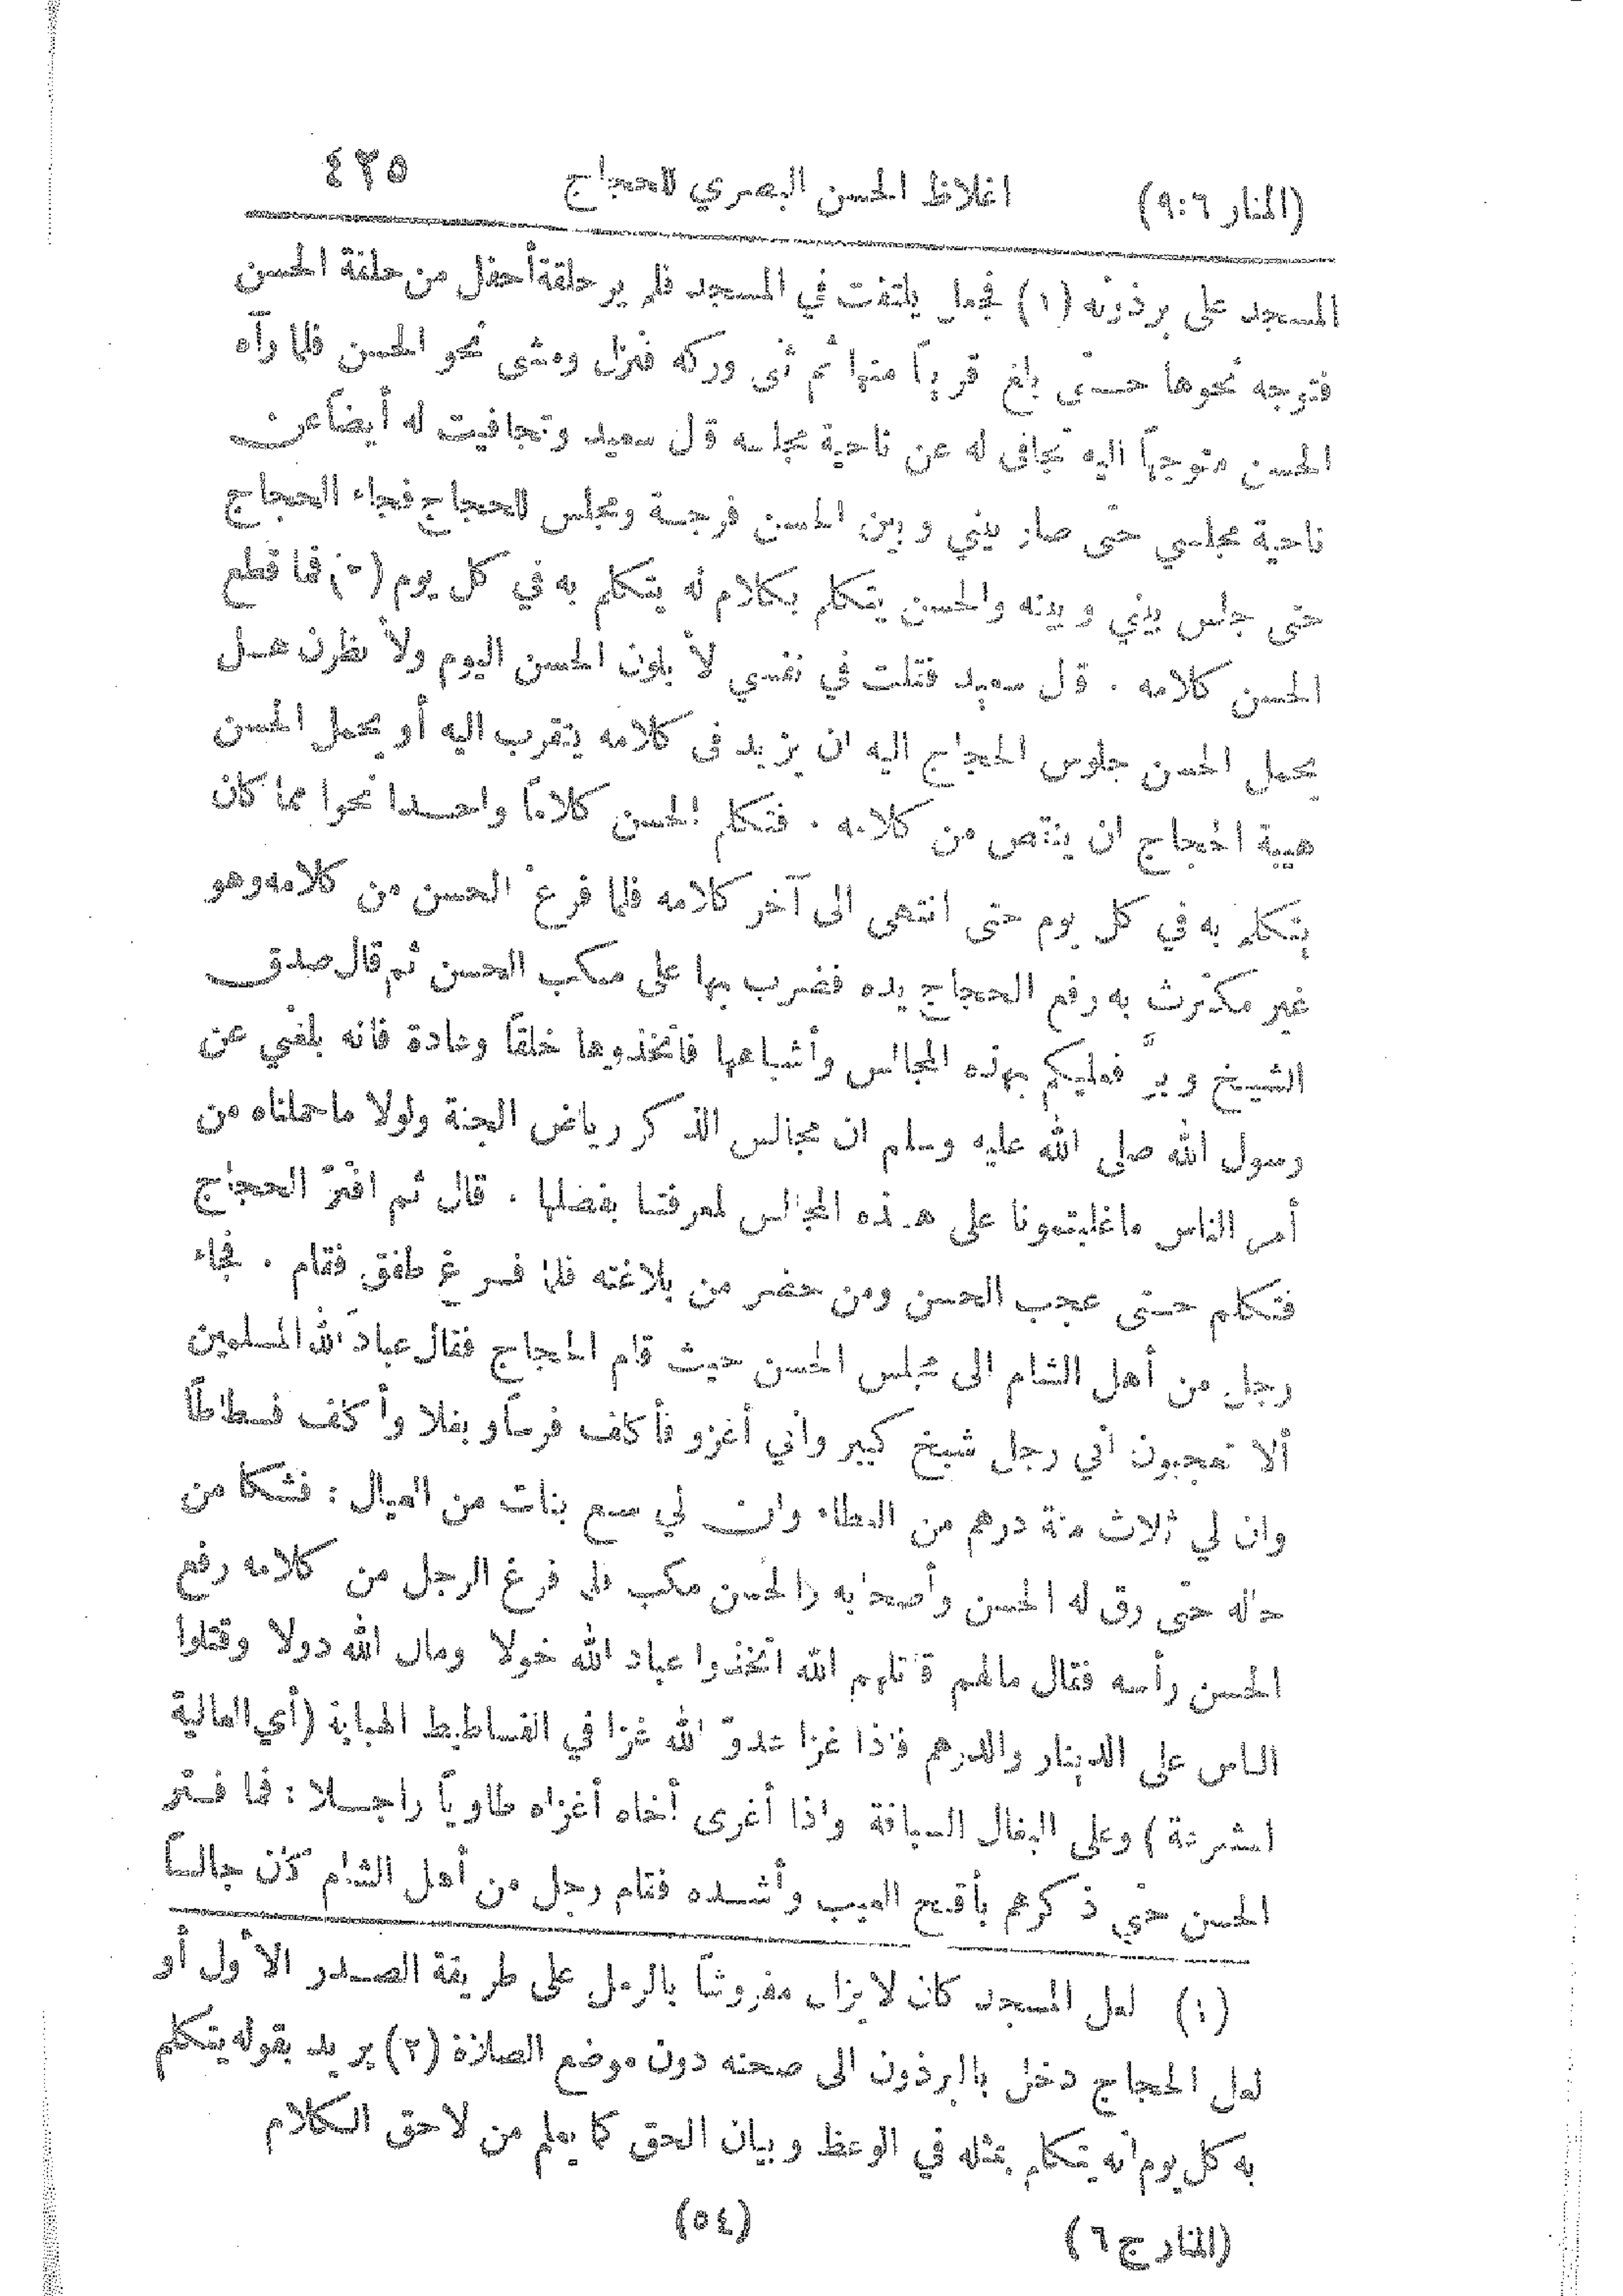 (المنار ٩:٦) اغلاظ الحسن البصري للحجاج ٤٢٥
المسجد على برذونه (١) فجعل يلتفت في المسجد فلم ير حلقة أحفل من حلقة الحسن
فتوجه نحوها حتى بلغ قريباً منها ثم ثنى وركه فنزل ومشى نحو الحسن فلما رآه
الحسن متوجهاً اليه تجافى له عن ناحية مجلسه قال سعيد وتجافيت له أيضاً عن
ناحية مجلسي حتى صار بيني وبين الحسن فرجة ومجلس للحجاج فجاء الحجاج
حتى جلس بيني وبينه والحسن يتكلم بكلام له يتكلم به في كل يوم (٢) فما قطع
الحسن كلامه . قال سعيد فقلت في نفسي لأبلون الحسن اليوم ولأنظرن هل
يحمل الحسن جلوس الحجاج اليه ان يزيد في كلامه يتقرب اليه أو يحمل الحسن
هيبة الحجاج ان ينقص من كلامه . فتكلم الحسن كلاماً واحدا نحوا مما كان
يتكلم به في كل يوم حتى انتهى الى آخر كلامه فلما فرغ الحسن من كلامه وهو
غير مكترث به رفع الحجاج يده فضرب بها على منكب الحسن ثم قال صدق
الشيخ وبرَّ فعليكم بهذه المجالس وأشباهها فاتخذوها خلقاً وعادة فانه بلغني عن
رسول الله صلى الله عليه وسلم ان مجالس الذكر رياض الجنة ولولا ما حملناه من
أمر الناس ماغلبتمونا على هذه المجالس لمعرفتنا بفضلها . قال ثم افترّ الحجاج
فتكلم حتى عجب الحسن ومن حضر من بلاغته فلما فرغ طفق فقام . فجاء
رجل من أهل الشام الى مجلس الحسن حيث قام الحجاج فقال عباد الله المسلمين
ألا تعجبون أني رجل شيخ كبير واني أغزو فأكلف فرساً وبغلا وأكلف فسطاطاً
وان لي ثلاث مئة درهم من العطاء وان لي سبع بنات من العيال : فشكا من
حاله حتى رق له الحسن وأصحابه والحسن مكب فلما فرغ الرجل من كلامه رفع
الحسن رأسه فقال مالهم قاتلهم الله اتخذوا عباد الله خولا ومال الله دولا وقتلوا
الناس على الدينار والدرهم فاذا غزا عدوّ الله غزا في الفساطيط الهبابة (أي العالية
المشرعة) وعلى البغال السباقة واذا أغزى أخاه أغزاه طاوياً راجلا : فما فتر
الحسن حتى ذكرهم بأقبح العيب وأشده فقام رجل من أهل الشام كان جالساً
(١) لعل المسجد كان لايزال مفروشاً بالرمل على طريقة الصدر الأول أو
لعل الحجاج دخل بالبرذون الى صحنه دون موضع الصلاة (٢) يريد بقوله يتكلم
به كل يوم انه يتكلم بمثله في الوعظ وبيان الحق كما يعلم من لاحق الكلام
(المنارج ٦) (٥٤)